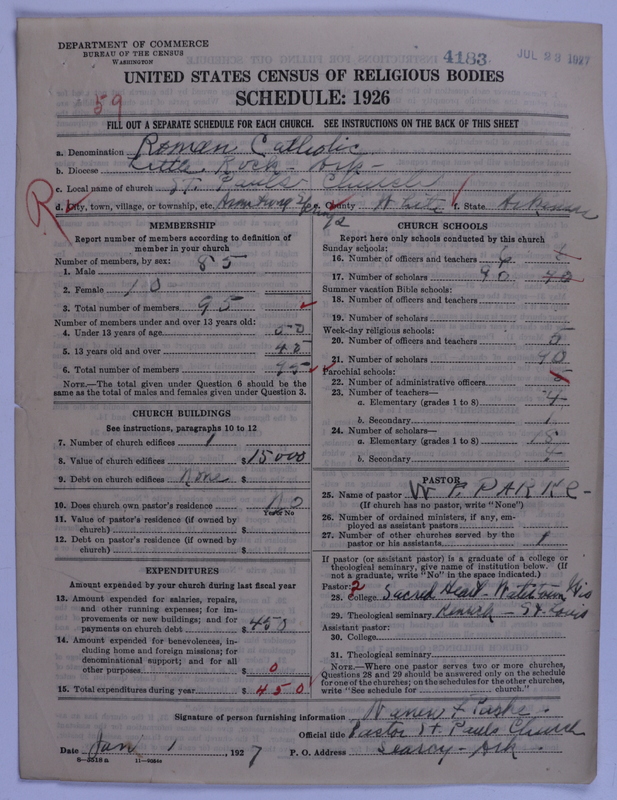 DEPARTMENT OF COMMERCE
BUREAU OF THE CENSUS
WASHINGTON
4183
JUL 23 1927
UNITED STATES CENSUS OF RELIGIOUS BODIES
SCHEDULE: 1926
59
FILL OUT A SEPARATE SCHEDULE FOR EACH CHURCH. SEE INSTRUCTIONS ON THE BACK OF THIS SHEET
a. Denomination Roman Catholic
b. Diocese Little Rock - Ark -
c. Local name of church ST. Pauls Church
R
d. City, town, village, or township, etc. Armstrong e. County White f. State Arkansas
MEMBERSHIP
Report number of members according to definition of member in your church
Number of members, by sex:
1. Male 85
2. Female 10
3. Total number of members 95
Number of members under and over 13 years old:
4. Under 13 years of age 50
5. 13 years old and over 45
6. Total number of members 95
NOTE.—The total given under Question 6 should be the same as the total of males and females given under Question 3.
CHURCH BUILDINGS
See instructions, paragraphs 10 to 12
7. Number of church edifices 1
8. Value of church edifices $15000
9. Debt on church edifices None $
10. Does church own pastor's residence No
Yes or No
11. Value of pastor's residence (if owned by church) $
12. Debt on pastor's residence (if owned by church) $
EXPENDITURES
Amount expended by your church during last fiscal year
13. Amount expended for salaries, repairs, and other running expenses; for improvements or new buildings; and for payments on church debt $450
14. Amount expended for benevolences, including home and foreign missions; for denominational support; and for all other purposes $0
15. Total expenditures during year $450
CHURCH SCHOOLS
Report here only schools conducted by this church
Sunday schools:
16. Number of officers and teachers 6
17. Number of scholars 90 90
Summer vacation Bible schools:
18. Number of officers and teachers
19. Number of scholars
Week-day religious schools:
20. Number of officers and teachers 5
21. Number of scholars 90
Parochial schools:
22. Number of administrative officers 5
23. Number of teachers—
a. Elementary (grades 1 to 8) 4
b. Secondary 1
24. Number of scholars—
a. Elementary (grades 1 to 8) 18
b. Secondary
PASTOR
25. Name of pastor W F. PARKE-
(If church has no pastor, write "None")
26. Number of ordained ministers, if any, employed as assistant pastors
27. Number of other churches served by the pastor or his assistants 1
If pastor (or assistant pastor) is a graduate of a college or theological seminary, give name of institution below. (If not a graduate, write "No" in the space indicated.)
Pastor: 2
28. College Sacred Heart - Watertown Wis
29. Theological seminary Kenrick - St. Louis
Assistant pastor:
30. College
31. Theological seminary
NOTE.—Where one pastor serves two or more churches, Questions 28 and 29 should be answered only on the schedule for one of the churches; on the schedules for the other churches, write "See schedule for church."
Signature of person furnishing information
Official title Pastor St Pauls Church
Date Jan 1, 1927 P. O. Address Searcy - Ark
8-3518a